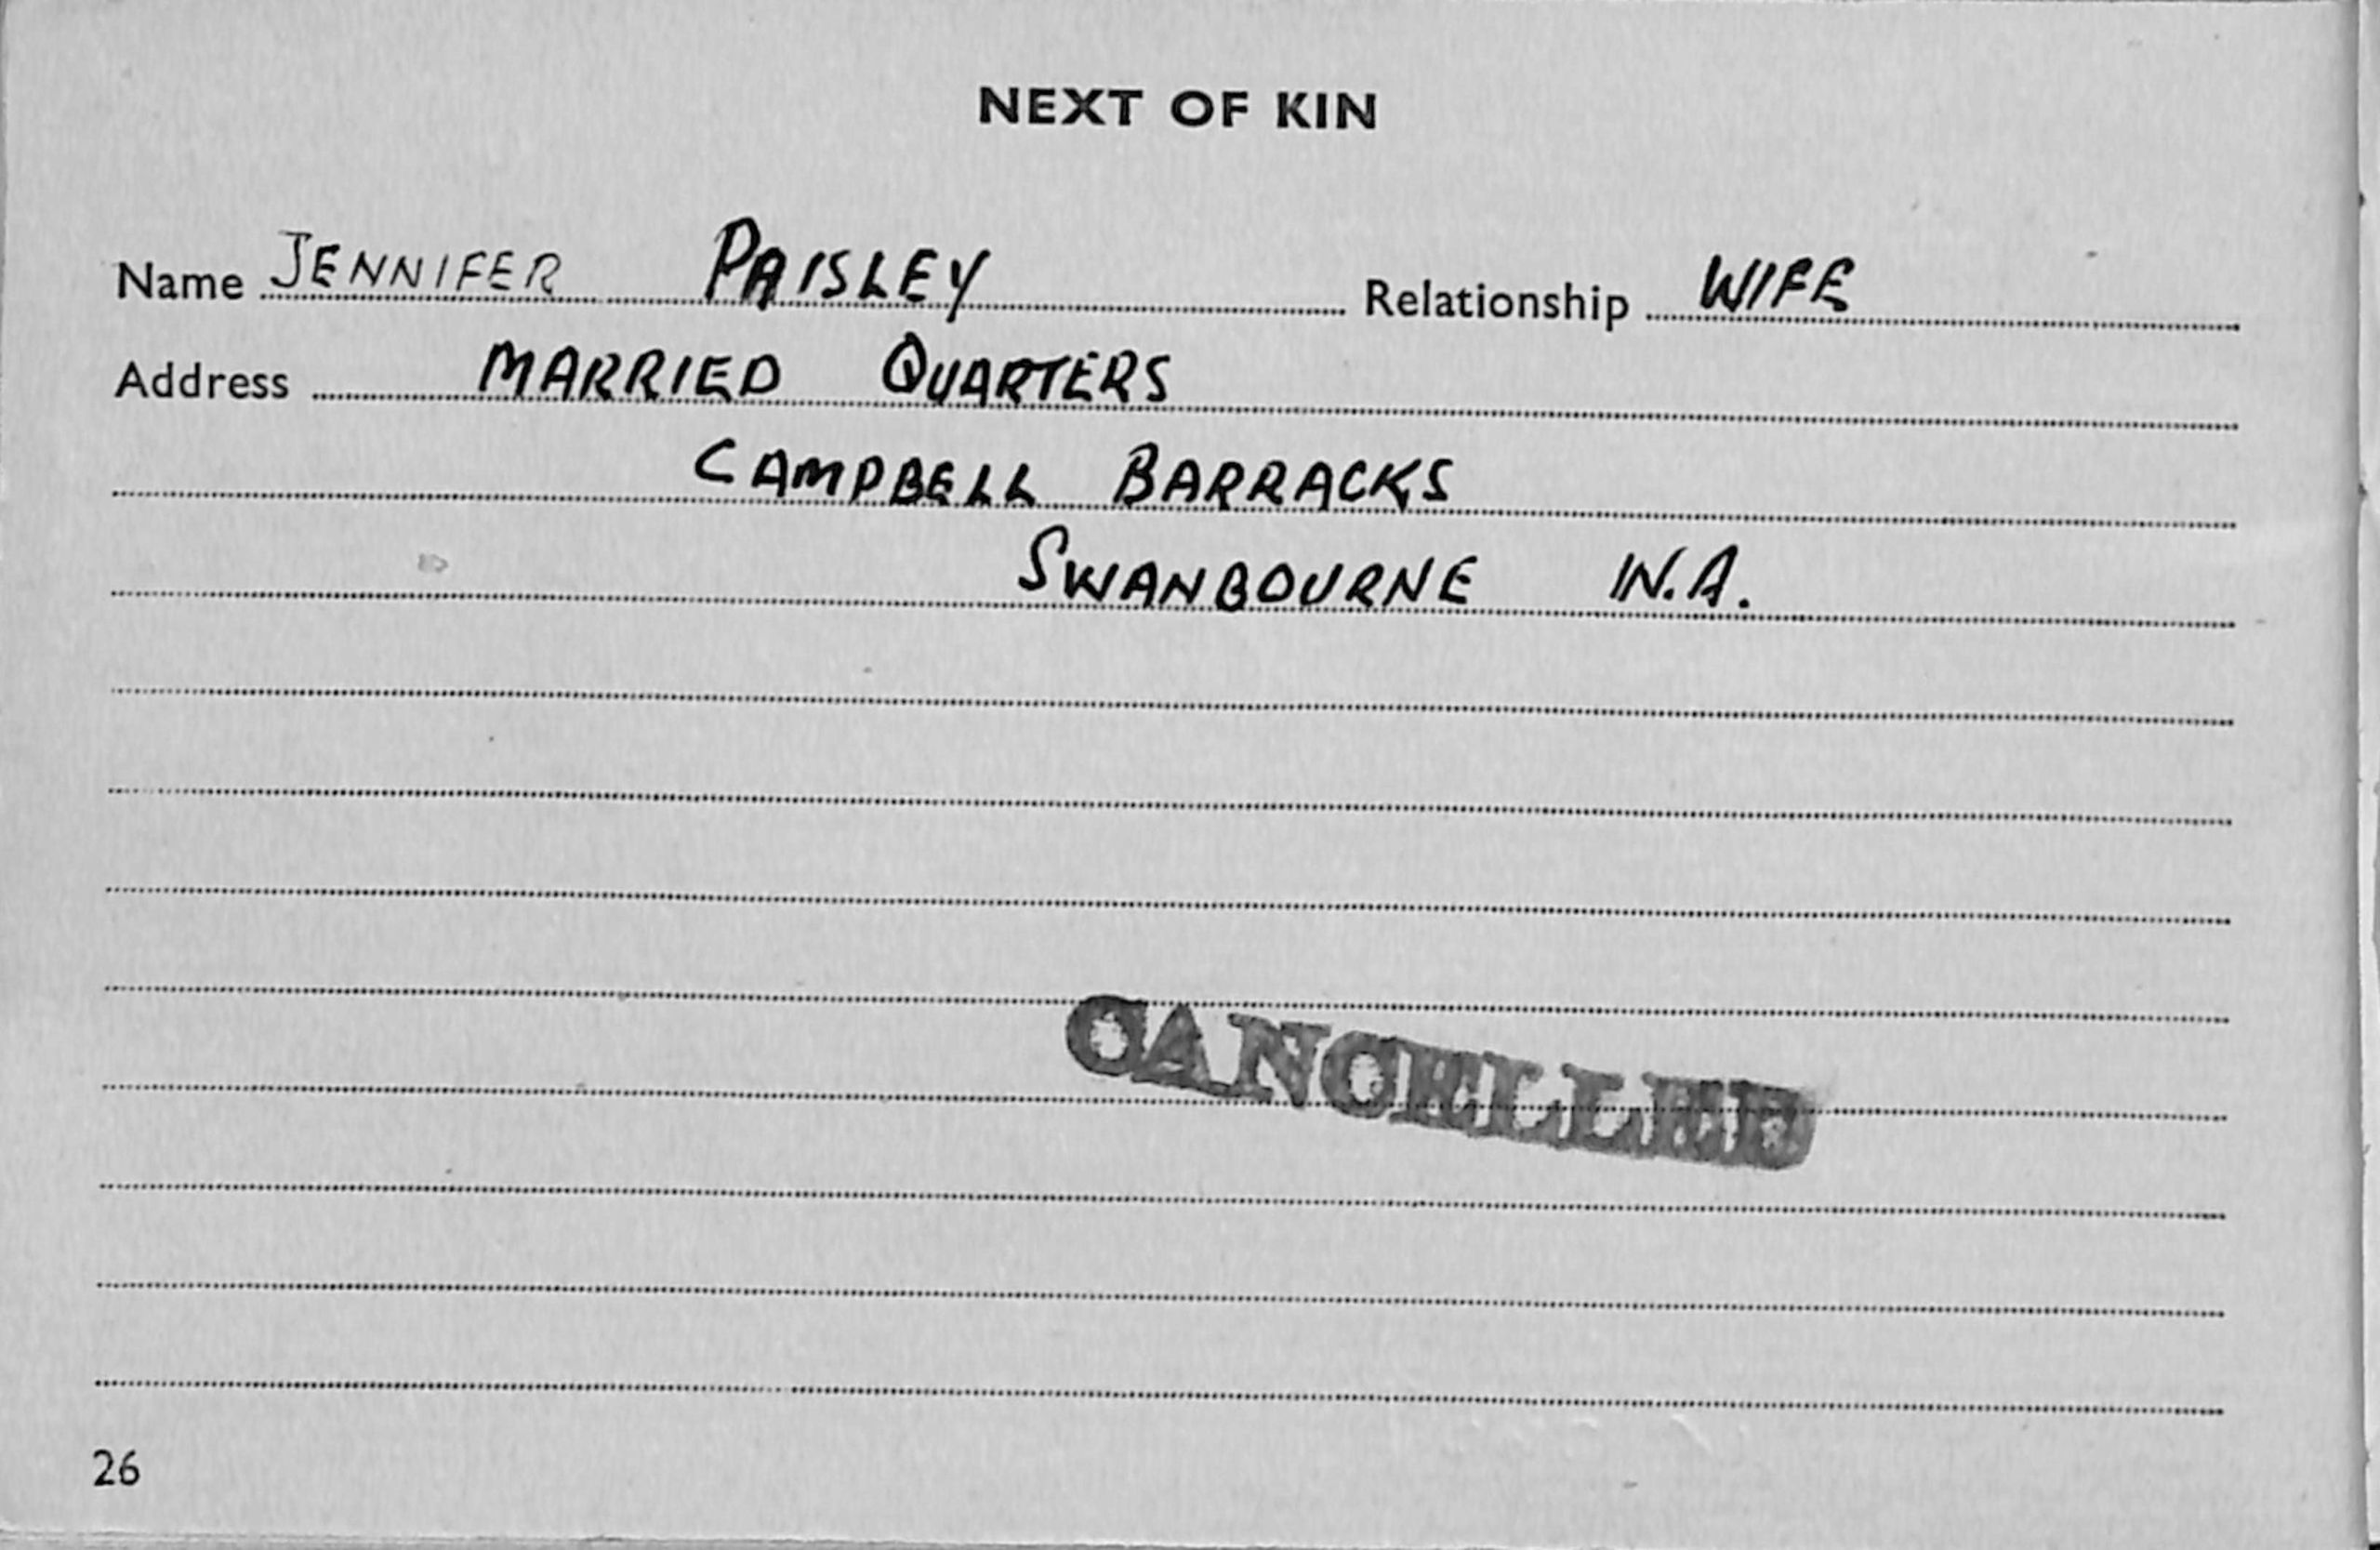 NEXT OF KIN
Name JENNIFER PAISLEY Relationship WIFE
Address MARRIED QUARTERS
CAMPBELL BARRACKS
SWANBOURNE W.A.
CANCELLED
26